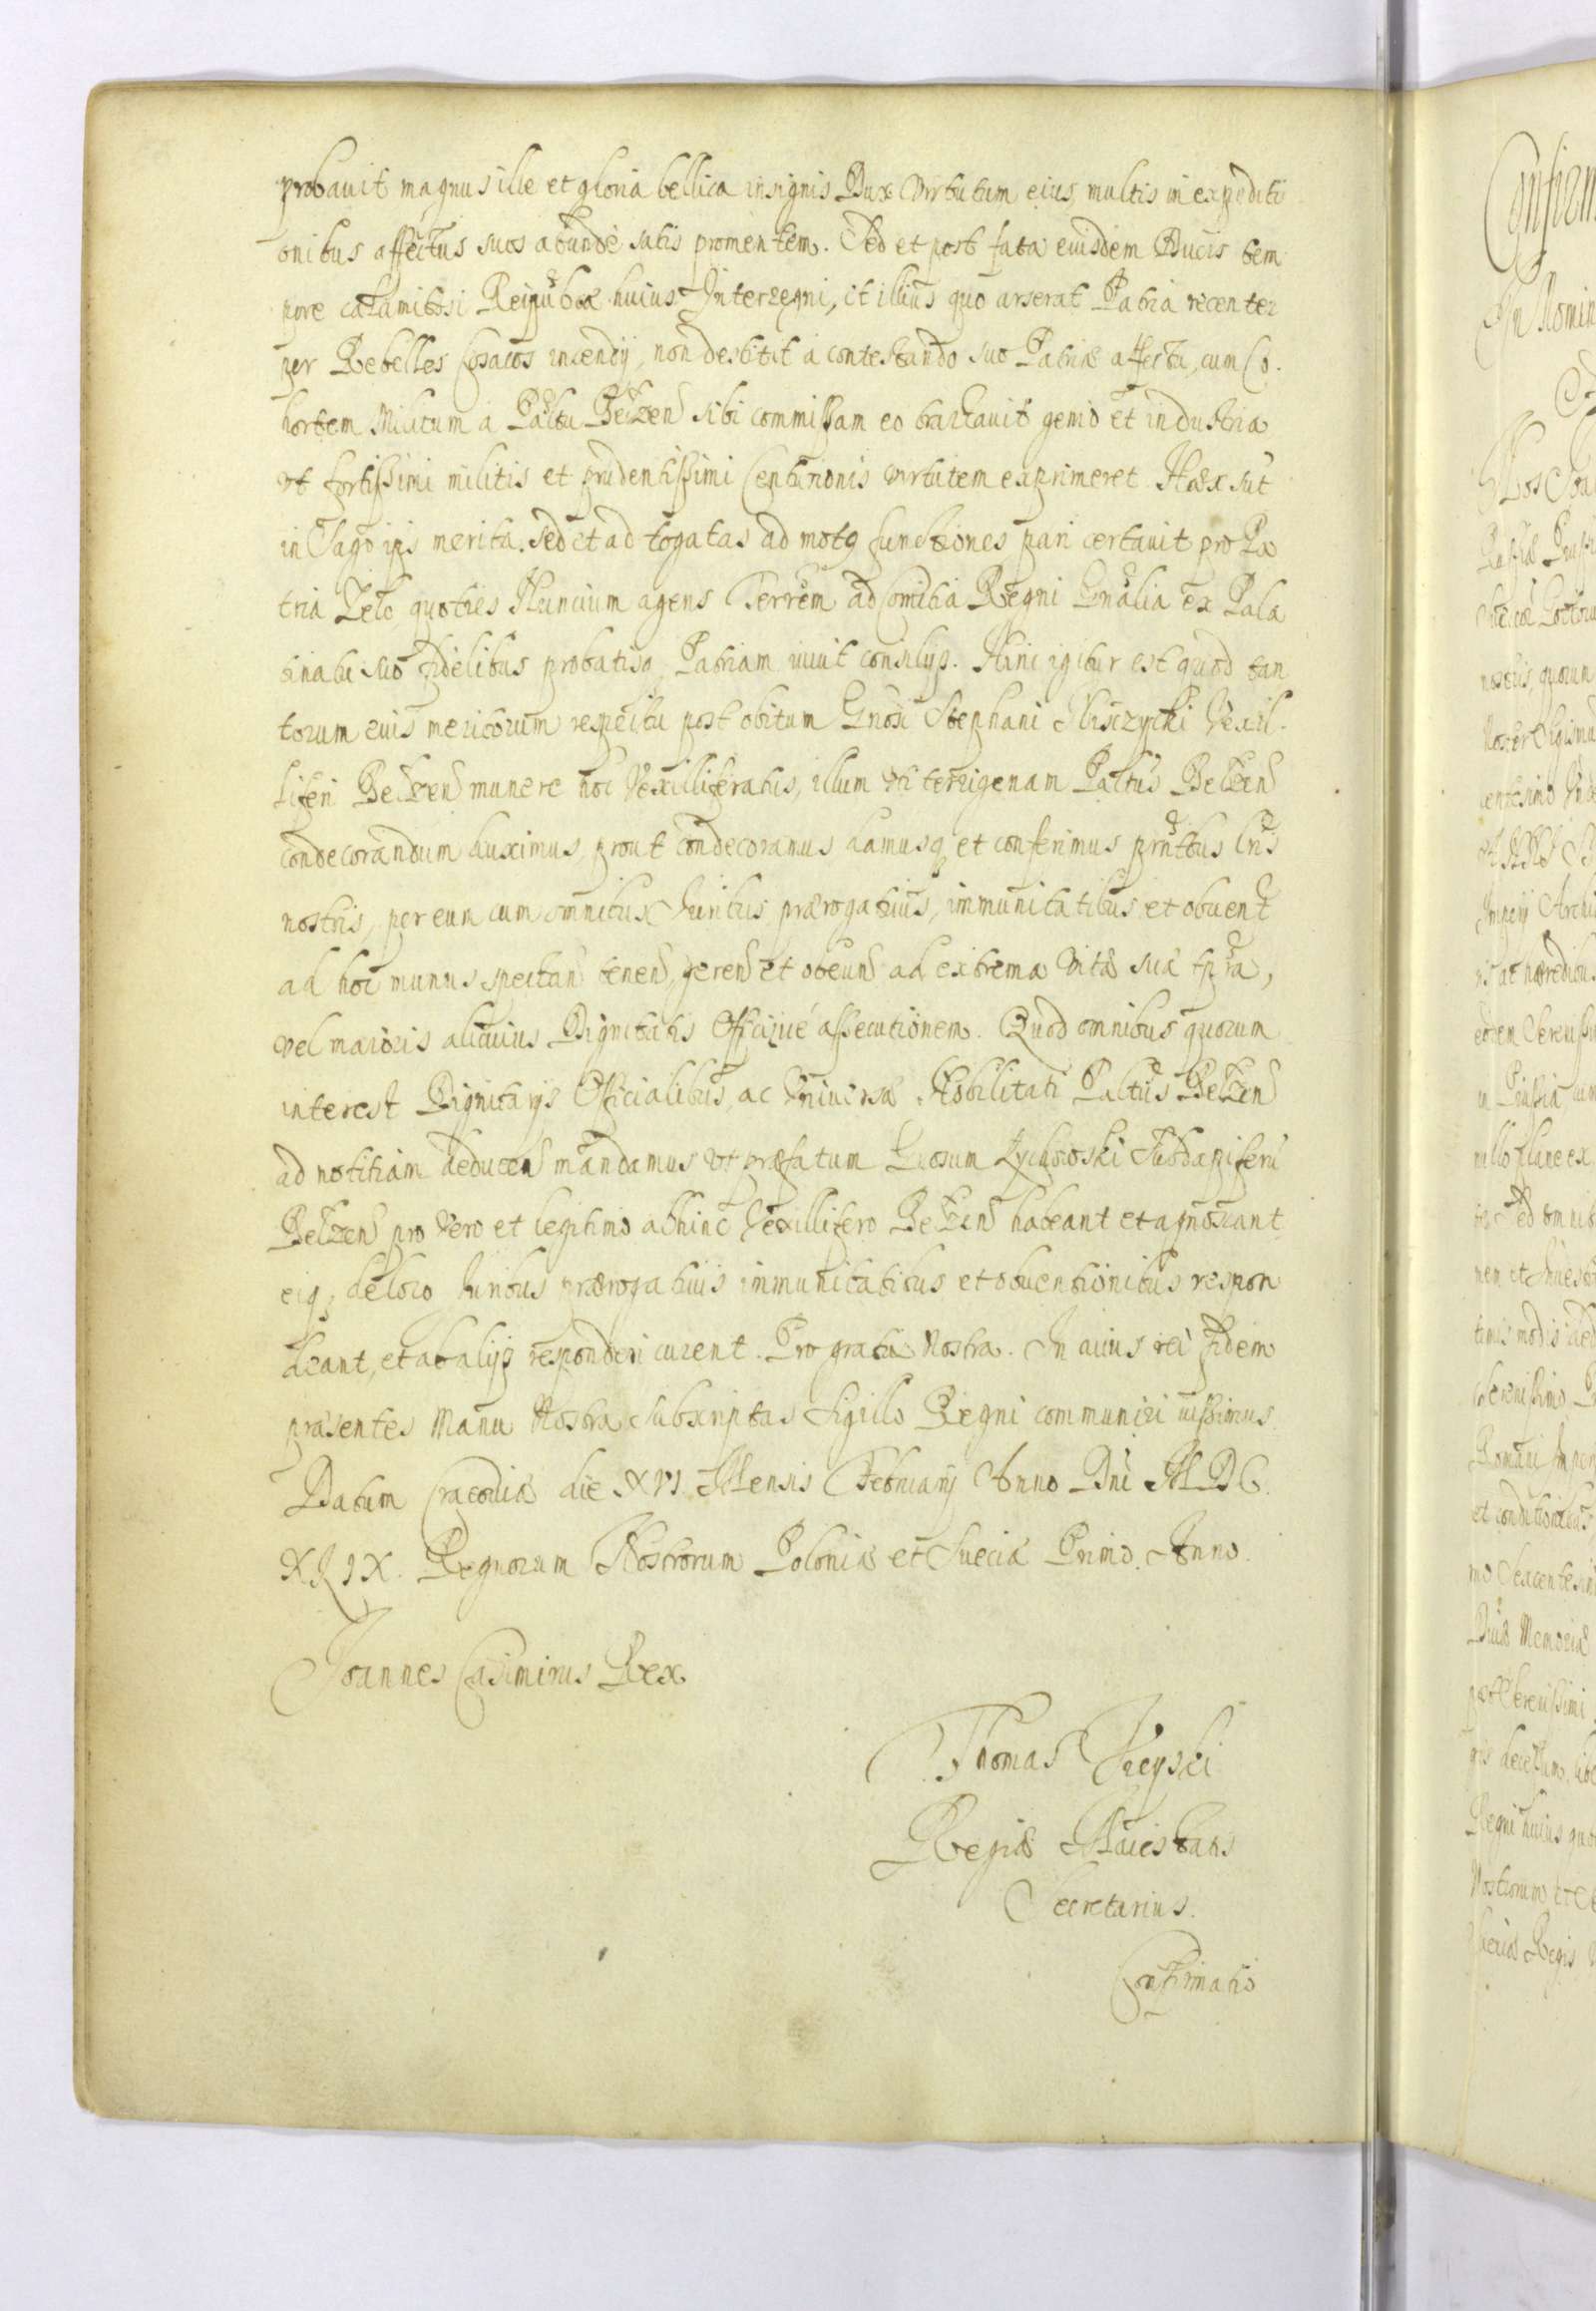 probauit magnus ille et gloria bellica insignis Dux virtutum eius, multis in expediti
onibus affectus suos abunde satis promentem. Sed et post fata eiusdem Ducis tem
pore calamitosi Reipublcæ huius Interregni, et illius quo arserat Patria recenter
per Rebelles Cosacos incendij, non destitit a contestando suo Patriæ affectu, cum Co.
hortem Militum a Palttu Belzen sibi commissam eo tractauit genio et industria
vt fortissimi militis et prudentissimi Centurionis virtutem exprimeret. Hæc sut
in Sago ips merita. Sed et ad togatas ad motq functiones pari certauit pro Pa
tria Zelo, quoties Nuncium agens Terrem ad Comitia Regni Gnalia ex Pala
tinatu suo fidelibus probatisq Patriam iuuit consilijs. Hinc igitur est quod tan
torum eius meritorum respectu post obitum Gnosi Stephani Vexil.
liferi Belzen munere hoc Vexilliferatus, illum vti terrigenam Paltus Belzen
condecorandum duximus, prout condecoramus damusq et conferimus prnttbus lris
nostris, per eum cum omnibus Iuribus prærogatiuis, immunitatibus et obuent
ad hoc munus spectan tenen, geren et obeun ad extrema vitæ suæ tpra,
vel maioris alicuius Dignitatis Officijué assecutionem. Quod omnibus quorum
interest Dignitarijs Officialibus, ac Vniuersæ Nobilitati Paltus Belzen
ad notitiam deducen mandamus vt præfatum Gnosum Lychowski Subdapiferu
Belzen pro vero et legitimo abhinc Vexillifero Belzen habeant et agnoscant
eiq de loco Iuribus prærogatiuis immunitatibus et obuentionibus respon
deant, et ab alijs responderi curent. Pro gratia Nostra. In cuius rei fidem
præsentes Manu Nostra subscriptas Sigillo Regni communiri iussimus.
Datum Cracouiæ die XVI Mensis Februarij Anno Dni MDC.
XLIX. Regnorum Nostrorum Poloniæ et Sueciæ Primo Anno.
Joannes Casimirus Rex
Thomas Vieyski
Regiæ Maiestatis
Secretarius.
Confirmatio